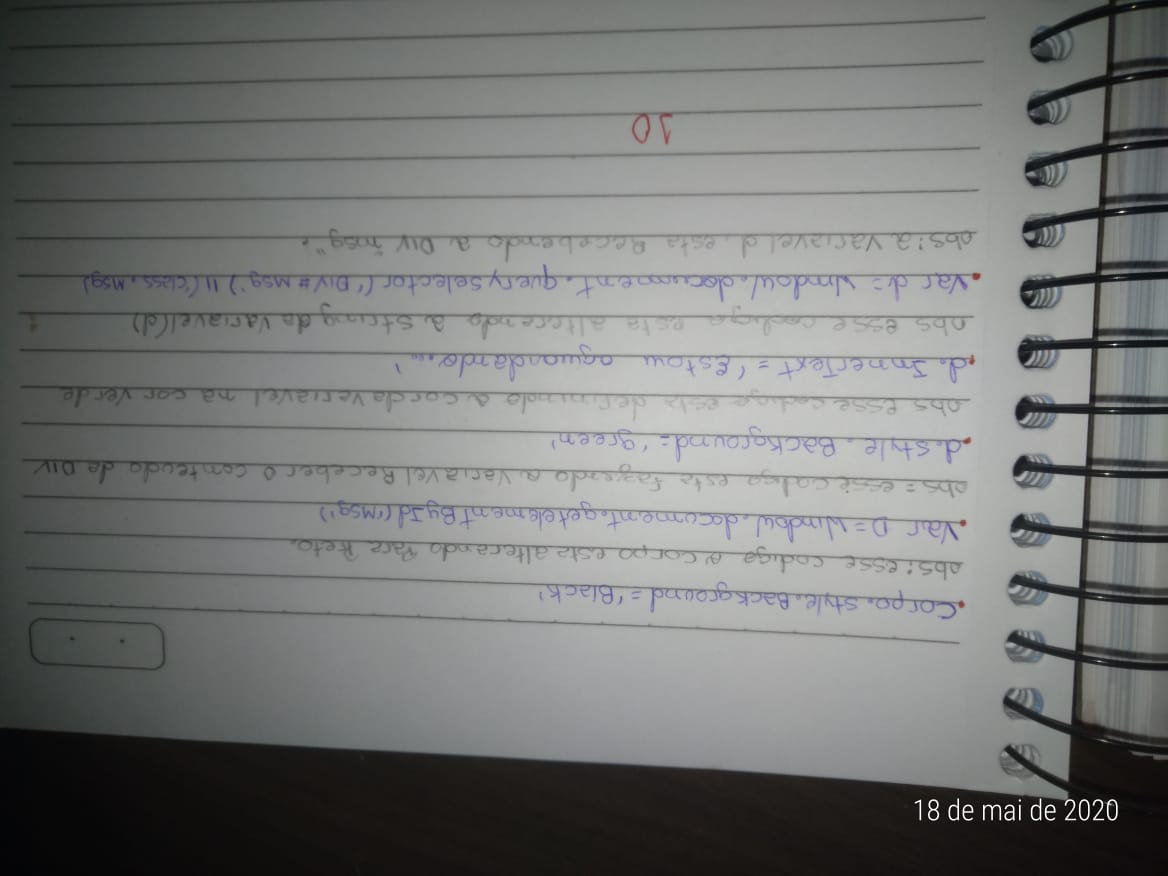 .Corpo.style.Background = 'Black'
obs: esse codigo o corpo esta alterando Para Preto.
.Var D = Window.document.getelementById('Msg')
obs = esse codigo esta fazendo a variavel Receber o conteudo da DIV
.d.style.Background = 'green'
obs esse codigo esta definindo a cor da variavel na cor verde
.d.InnerText = 'Estou aguardando...'
obs esse codigo esta alterando a string da variavel(d)
.Var d = Window.document.queryselector('Div#Msg') || (class.Msg)
obs: a variavel d, esta Recebendo a DIV "msg".
10
18 de mai de 2020